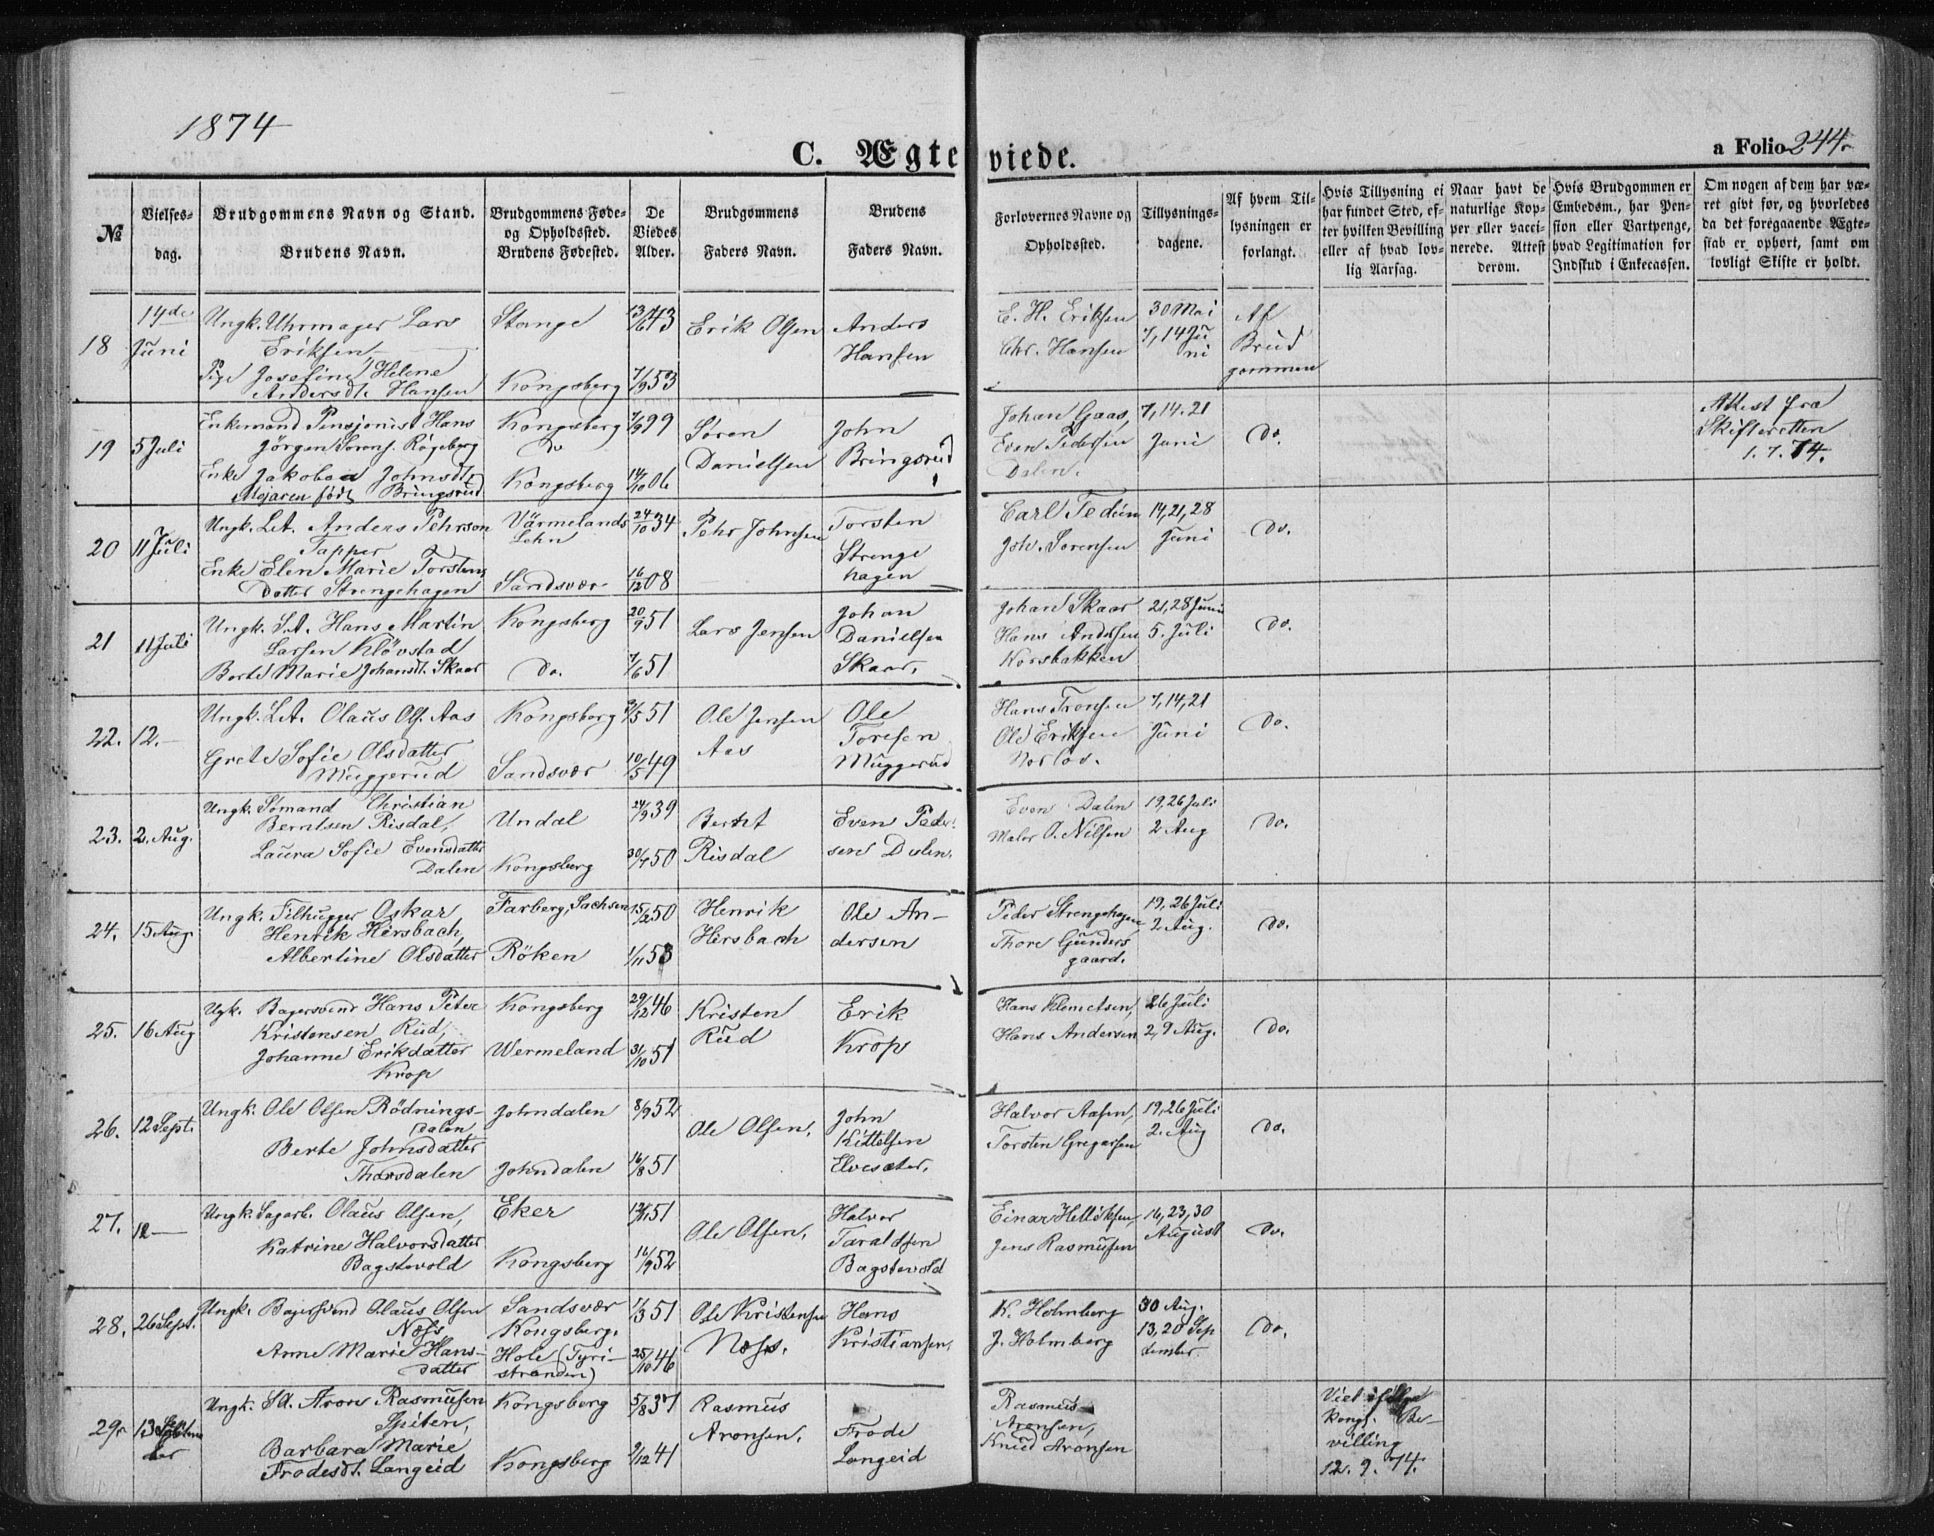 1874
C. Ægteviede.
a Folio 244.
№
Vielsesdag.
Brudgommens Navn og Stand.
Brudens Navn.
Brudgommens Føde- og Opholdssted.
Brudens Fødested.
De Viedes Alder.
Brudgommens Faders Navn.
Brudens Faders Navn.
Forlovernes Navne og Opholdssted.
Tillysningsdagene.
Af hvem Tillysningen er forlangt.
Hvis Tillysning ei har fundet Sted, efter hvilken Bevilling eller af hvad lovlig Aarsag.
Naar havt de naturlige Kopper eller vaccinerede. Attest derom.
Hvis Brudgommen er Embedsm., har Pension eller Vartpenge, hvad Legitimation for Indskud i Enkecassen.
Om nogen af dem har været givt før, og hvorledes da det foregaaende Ægteskab er ophørt, samt om lovligt Skifte er holdt.
18 14de Juni
Ungk. Uhrmager Lars Eriksen
Pige Josefine Helene Andersdt. Hansen
Stange
Kongsberg
13/6 43
7/9 53
Erik Olsen
Anders Hansen
E. H. Eriksen
Chr. Hansen
30 Mai
7, 14 Juni
Af Brudgommen
19 5 Juli
Enkemand Pensjonist Hans Jörgen Sörens. Rögeberg
Enke Jakobea Johnsdt. Mojaren født Bringsrud
Kongsberg
Do
Kongsberg
7/9 99
14/10 06
Søren Danielsen
John Bringsrud
Johan Gaas,
Even Pedersen Dalen.
7, 14. 21 Juni
Do.
Attest fra Skifteretten 1. 7. 74.
20 11 Juli
Ungk. L.A. Anders Pehrson Tapper
Enke Elen Marie Torstensdatter Strengehagen
Värmelands Lehn
Sandsvær
24/10 34
16/12 08
Pehr Johnsen
Torsten Strengehagen
Carl Tedin
Joh. Sorensen
14, 21, 28 Juni
Do.
21 11 Juli
Ungk. S.A. Hans Martin Larsen Klövstad
Berte Marie Johansdt. Skaar
Kongsberg
Do.
20/9 51
7/6 51
Lars Jensen
Johan Danielsen Skaar.
Johan Skaar
Hans Andersen Korsbakken
21, 28 Juni
5. Juli
Do.
22. 12.—
Ungk. L.A. Olaus Ols. Aas
Grete Sofie Olsdatter Muggerud
Kongsberg
Sandsvær
2/5 51
10/5 49
Ole Jensen Aas
Ole Toresen Muggerud
Hans Tronsen
Ole Eriksen
7, 14, 21 Juni
Do.
23. 2. Aug.
Ungk. Sømand Christian Berntsen Risdal,
Laura Sofie Evensdatter Dalen
Undal
Kongsberg
24/9 39
30/7 50
Bernt Risdal
Even Pedersen Dalen.
Even Dalen
Maler O. Nilsen
19, 26 Juli
2 Aug
Do.
24. 15 Aug.
Ungk. Filhugger Oskar Henrik Hirsbach,
Albertine Olsdatter
Farberg, Sachsen
Röken
15/2 50
1/11 53
Henrik Hirsbach
Ole Andersen
Peder Strengehagen
Thore Gundersgaard.
19, 26 Juli
2 Aug.
Do.
25. 16 Aug
Ugk. Bagersvend Hans Peter Kristensen Rud,
Johanne Erikdatter Krop
Kongsberg
Wermeland
29/12 46
31/10 51
Kristen Rud
Erik Krops
Hans Klemetsen,
Hans Andersen
26 Juli
2, 9 Aug.
Do.
26. 12 Sept.
Ungk. Ole Olsen Rödningsdalen
Berte Johnsdatter Thorsdalen
Johndalen
Johndalen
8/9 52
16/8 51
Ole Olsen.
John Kittelsen Elvesæter.
Halvor Aasen,
Torsten Gregersen
19, 26 Juli
2. Aug
Do.
27. 12—
Ungk. Sagarb. Olaus Olsen,
Katrine Halvorsdatter Bagstevold
Eker
Kongsberg
12/11 51
16/9 52
Ole Olsen.
Halvor Taraldsen Bagstevold
Einar Helliksen,
Jens Rasmusen
16, 23, 30 August
Do.
28. 26 Sept.
Ungk. Bagersvend Olaus Olsen Næss
Anne Marie Hansdatter
Sandsvær
Kongsberg.
Hole (Tyristranden)
1/3 51
25/10 46
Ole Kristensen Næss.
Hans Kristiansen.
K. Holmberg
J. Holmberg
30 Aug.
13, 20 September.
Do.
29. 13 September
Ungk. SA. Aron Rasmusen Spiten,
Barbara Marie Frodesdt. Langeid
Kongsberg
Kongsberg
5/8 37
2/12 41
Rasmus Aronsen.
Frode Langeid
Rasmus Aronsen,
Knud Aronsen
Viet ifølge Kongl. Bevilling 12. 9. 74.